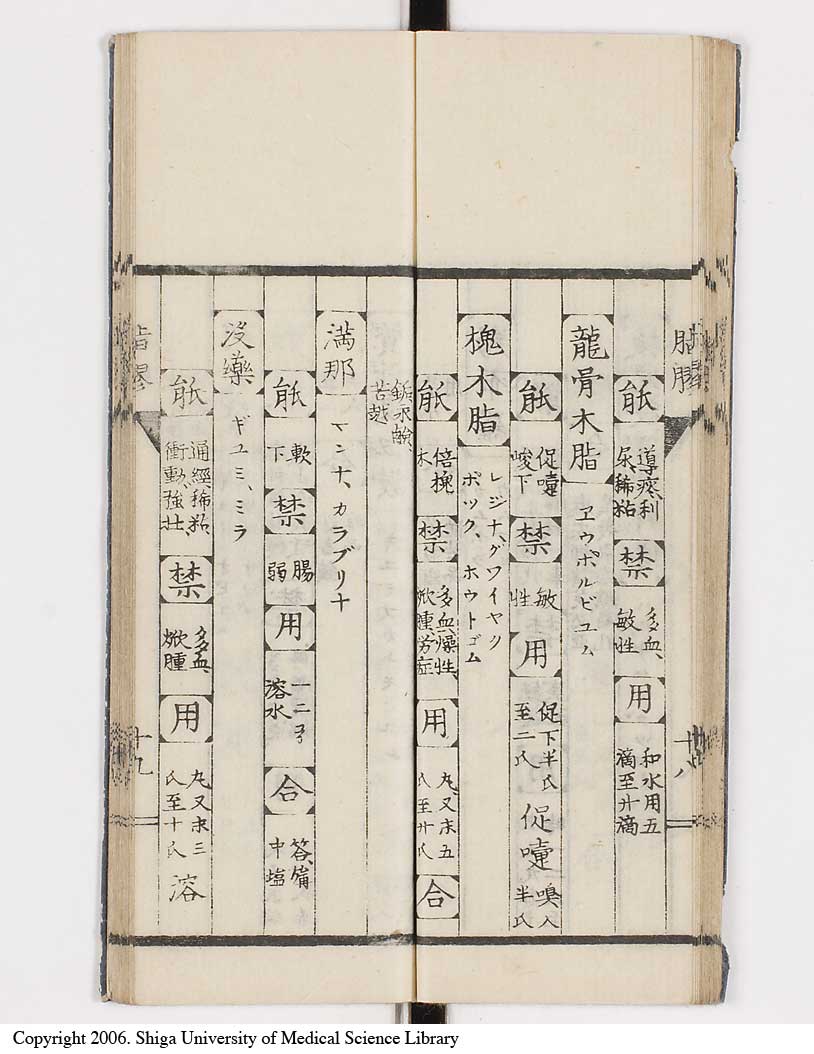 脂膠
能 導痰利尿稀粘 禁 多血、敏性 用 和水用五滴至廿滴
龍骨木脂 ヱウポルビユム
能 促嚏峻下 禁 敏性 用 促下半氏至二氏 促嚏 嗅入半氏
槐木脂 レジナ、グワイヤシ ポック、ホウトゴム
能 倍槐木 禁 多血燥性、焮腫労症 用 丸又末五氏至廿氏 合
鹹、苦越
満那 マンナ、カラブリナ
能 軟下 禁 腸弱 用 一二 溶水 合 中塩
没藥 ギユミ、ミラ
能 通經稀粘、衝動強壯、 禁 多血、焮腫 用 丸又末三氏至十氏 溶
十八
十九
Copyright 2006. Shiga University of Medical Science Library